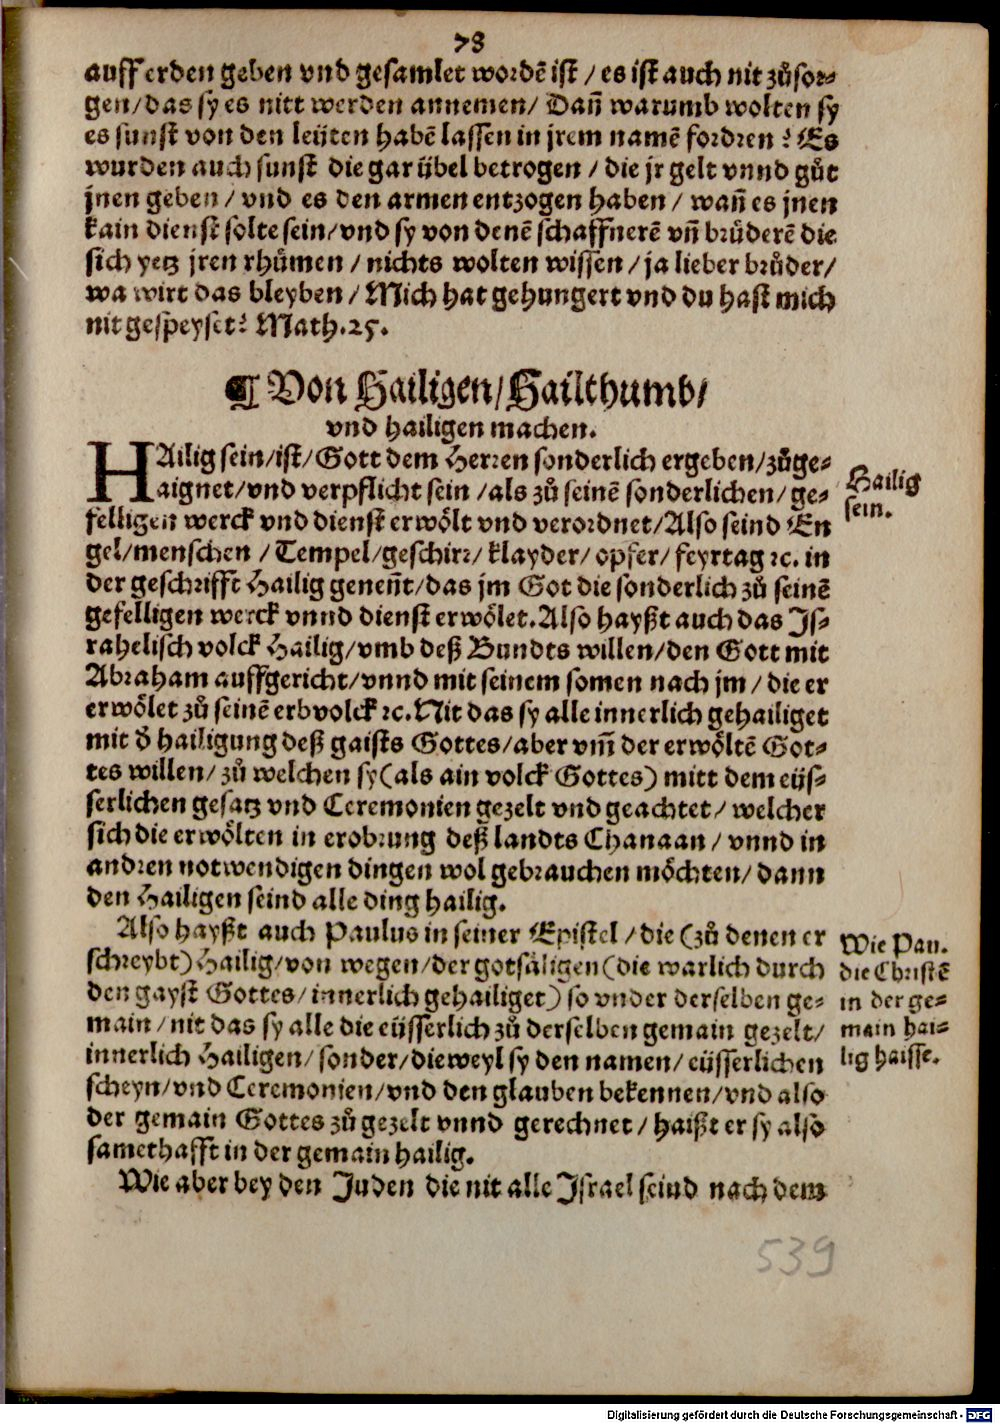 78
auff erden geben vnd gesamlet wordē ist / es ist auch nit zůsor-
gen/das sy es nitt werden annemen/ Dañ warumb wolten sy
es sunst von den leüten habē lassen in jrem namē fordren? Es
wurden auch sunst die gar übel betrogen / die jr gelt vnnd gůt
jnen geben / vnd es den armen entzogen haben / wañ es jnen
kain dienst solte sein/vnd sy von denē schaffnerē vñ brůderē die
sich yetz jren rhůmen / nichts wolten wissen / ja lieber brůder/
wa wirt das bleyben / Mich hat gehungert vnd du hast mich
nit gespeyset? Math.25.
¶ Von Hailigen/Hailthumb/
vnd hailigen machen.
HAilig sein/ist/Gott dem Herren sonderlich ergeben/zůge-
aignet/vnd verpflicht sein /als zů seinē sonderlichen/ ge-
felligen werck vnd dienst erwölt vnd verordnet/Also seind En
gel/menschen / Tempel/geschirr/ klayder/ opfer/ feyrtag ꝛc. in
der geschrifft Hailig geneñt/das jm Got die sonderlich zů seinē
gefelligen werck vnnd dienst erwölet. Also hayßt auch das Is-
rahelisch volck Hailig/vmb deß Bundts willen/den Gott mit
Abraham auffgericht/vnnd mit seinem somen nach jm / die er
erwölet zů seinē erbvolck ꝛc. Nit das sy alle innerlich gehailiget
mit d̄ hailigung deß gaists Gottes/aber vm̄ der erwöltē Got-
tes willen/ zů welchen sy (als ain volck Gottes) mitt dem eüs-
serlichen gesatz vnd Ceremonien gezelt vnd geachtet / welcher
sich die erwölten in erobrung deß landts Chanaan / vnnd in
andren notwendigen dingen wol gebrauchen möchten/ dann
den Hailigen seind alle ding hailig.
Also hayßt auch Paulus in seiner Epistel /die (zů denen er
schreybt) Hailig/von wegen/der gotsäligen (die warlich durch
den gayst Gottes/innerlich gehailiget) so vnder derselben ge-
main /nit das sy alle die eüsserlich zů derselben gemain gezelt/
innerlich Hailigen/sonder/dieweyl sy den namen/ eüsserlichen
scheyn/vnd Ceremonien/vnd den glauben bekennen/vnd also
der gemain Gottes zů gezelt vnnd gerechnet / haißt er sy also
samethafft in der gemain hailig.
Wie aber bey den Juden die nit alle Israel seind nach dem
Hailig
sein.
Wie Pau.
die Christē
in der ge-
main hai-
lig haisse.
539
Digitalisierung gefördert durch die Deutsche Forschungsgemeinschaft - DFG